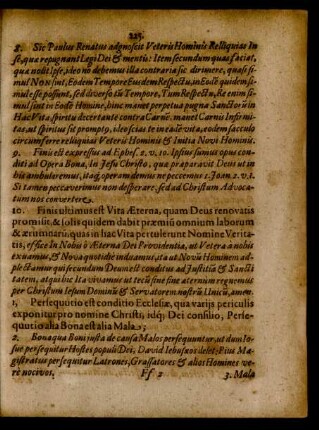 225.
8. Sic Paulus Renatus adgnoscit Veteris Hominis Relliquias In
se, quæ repugnant Legi Dei & mentis: Item secundum quas faciat,
quæ nolit Ipse, ideo nõ debemus illa contraria sic dirimere, quasi si-
mul Non sint, Eodem Tempore Eiusdem Respectu, in Eodẽ quidem si-
mul esse possunt, sed diverso tm̃ Tempore, Tum Respectu, Re enim si-
mul sunt in Eodẽ Homine, hinc manet perpetua pugna Sanctorũ in
Hac Vita spiritu decertante contra Carnẽ. manet Carnis Infirmi-
tas, ut spiritus sit promptꝰ, ideo scias te in eadẽ vita, eodem sacculo
circumferre relliquias Veteris Hominis & Initia Novi Hominis.
9. Finis est expressus ad Ephes. 2. v. 10. Ipsius sumus opus con-
diti ad Opera Bona, in Jesu Christo, quæ præparavit Deus ut in
his ambularemus, itaq; operam demus ne peccemus 1. Joam. 2. v. 1.
Si tamen peccaverimus non desperare, sed ad Christum Advoca-
tum nos convertere.
10. Finis ultimus est Vita Æterna, quam Deus renovatis
promisit, & solis quidem dabit præmiũ omnium laborum
& ærumnarũ, quas in hac Vita pertulerunt Nomine Verita-
tis, efficе In Nobis ô Æterna Dei Providentia, ut Vetera à nobis
exuamus, & Nova quotidie induamus, ita ut Novũ Hominem ad-
plectamur qui secundum Deum est conditus ad Justitiã & Sancti-
tatem, atq́ue hic ita vivamus ut tecũ sine fine æternùm regnemus
per Christum Iesum Dominũ & Servatorem nostrũ Unicũ, amen.
1. Persequutio est conditio Ecclesiæ, qua varijs periculis
exponitur pro nomine Christi, idq́; Dei consilio, Perse-
quutio alia Bona est alia Mala.;
2. Bona qua Boni justa de causa Malos persequuntur, ut dum Io-
sue persequitur Hostes populi Dei, David Iebusæos ileles: Pius Ma-
gistratus persequitur Latrones, Grassatores & alios Homines ve-
rè nocivos.
Ff 2
3. Mala